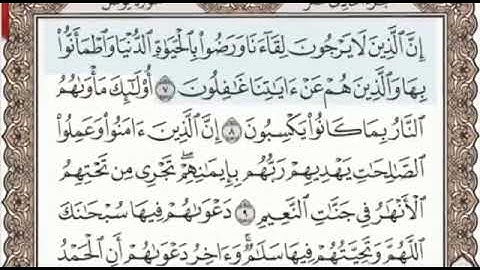 إِنَّ ٱلَّذِينَ لَا يَرْجُونَ لِقَآءَنَا وَرَضُوا۟ بِٱلْحَيَوٰةِ ٱلدُّنْيَا وَٱطْمَأَنُّوا۟
بِهَا وَٱلَّذِينَ هُمْ عَنْ ءَايَٰتِنَا غَٰفِلُونَ ٧ أُو۟لَٰٓئِكَ مَأْوَىٰهُمُ
ٱلنَّارُ بِمَا كَانُوا۟ يَكْسِبُونَ ٨ إِنَّ ٱلَّذِينَ ءَامَنُوا۟ وَعَمِلُوا۟
ٱلصَّٰلِحَٰتِ يَهْدِيهِمْ رَبُّهُم بِإِيمَٰنِهِمْ ۖ تَجْرِى مِن تَحْتِهِمُ
ٱلْأَنْهَٰرُ فِى جَنَّٰتِ ٱلنَّعِيمِ ٩ دَعْوَىٰهُمْ فِيهَا سُبْحَٰنَكَ
ٱللَّهُمَّ وَتَحِيَّتُهُمْ فِيهَا سَلَٰمٌ ۚ وَءَاخِرُ دَعْوَىٰهُمْ أَنِ ٱلْحَمْدُ